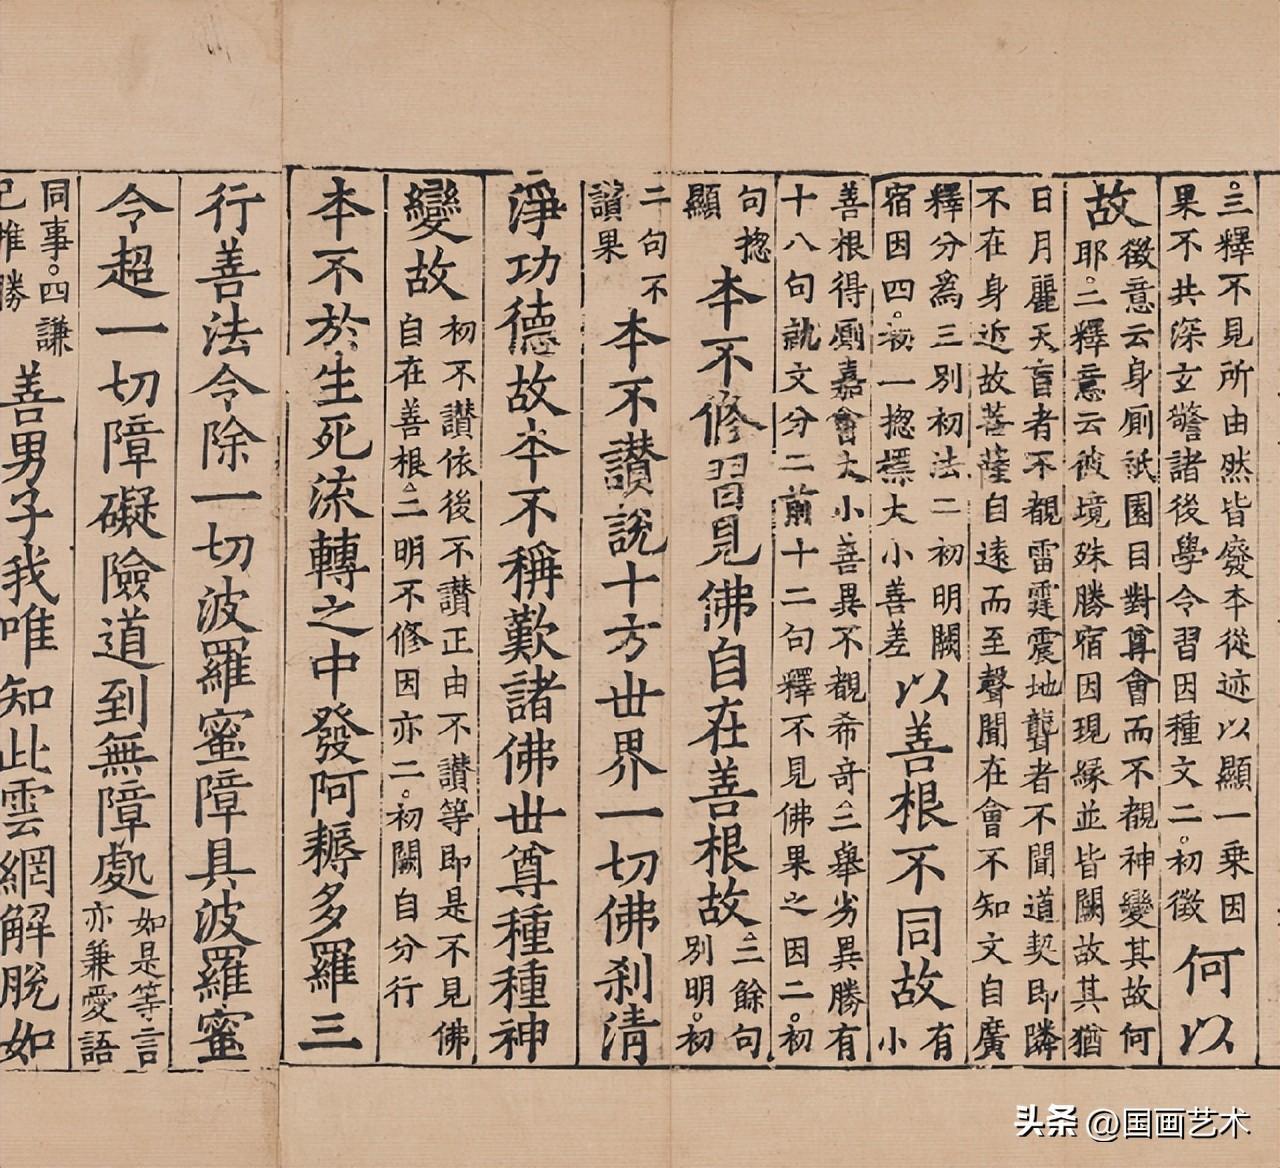 。三釋不見所由然皆廢本從迹以顯一乘因
果不共深玄警諸後學令習因種文二。初徵
何以
故
徵意云身廁祇園目對尊會而不覩神變其故何
耶。二釋意云彼境殊勝宿因現緣並皆闕故其猶
日月麗天盲者不覩雷霆震地聾者不聞道契即隣
不在身近故菩薩自遠而至聲聞在會不知文自廣
釋分爲三別初法二初明闕
宿因四。初一揔摽大小善差
以善根不同故
有
小
善根得廁嘉會大小善異不覩希奇△三舉劣異勝有
十八句就文分二前十二句釋不見佛果之因二。初
句揔
顯
本不修習見佛自在善根故
△三餘句
別明。初
二句不
讃果
本不讃說十方世界一切佛剎清
淨功德故本不稱歎諸佛世尊種種神
變故
初不讃依後不讃正由不讃等即是不見佛
自在善根△二明不修因亦二。初闕自分行
本不於生死流轉之中發阿耨多羅三
行善法令除一切波羅蜜障具波羅蜜
令超一切障礙險道到無障處
如是等言
亦兼愛語
同事。四謙
己推勝
善男子我唯知此雲網解脫如
头条 @国画艺术